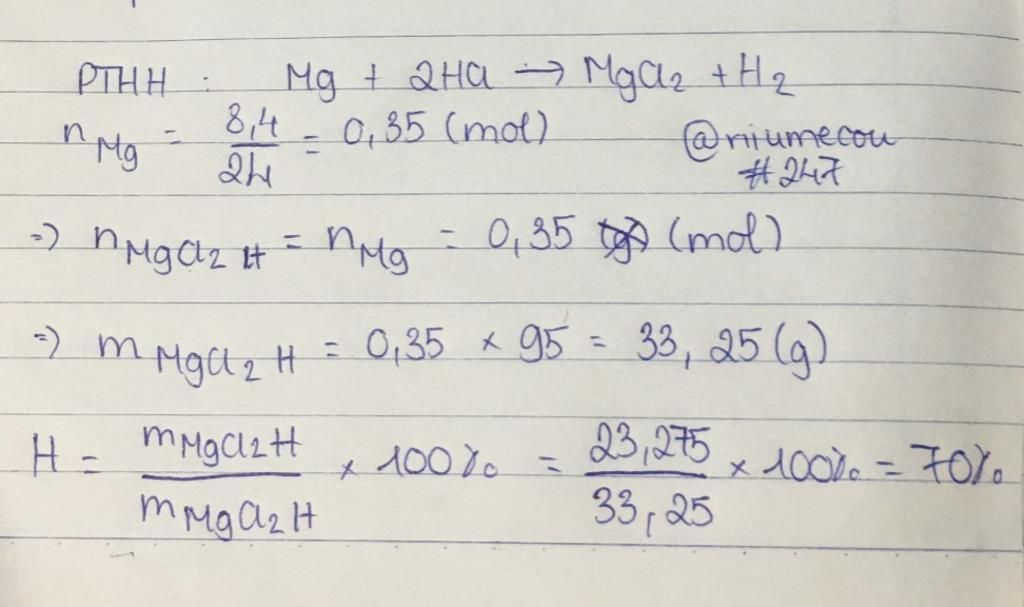 PTHH : Mg + 2HCl → MgCl₂ + H₂
n Mg = 8,4/24 = 0,35 (mol) @niumecou
#247
=) n MgCl₂ H = n Mg = 0,35 (mol)
=) m MgCl₂ H = 0,35 × 95 = 33,25 (g)
H = m MgCl₂ H / m MgCl₂ H × 100% = 23,275/33,25 × 100% = 70%